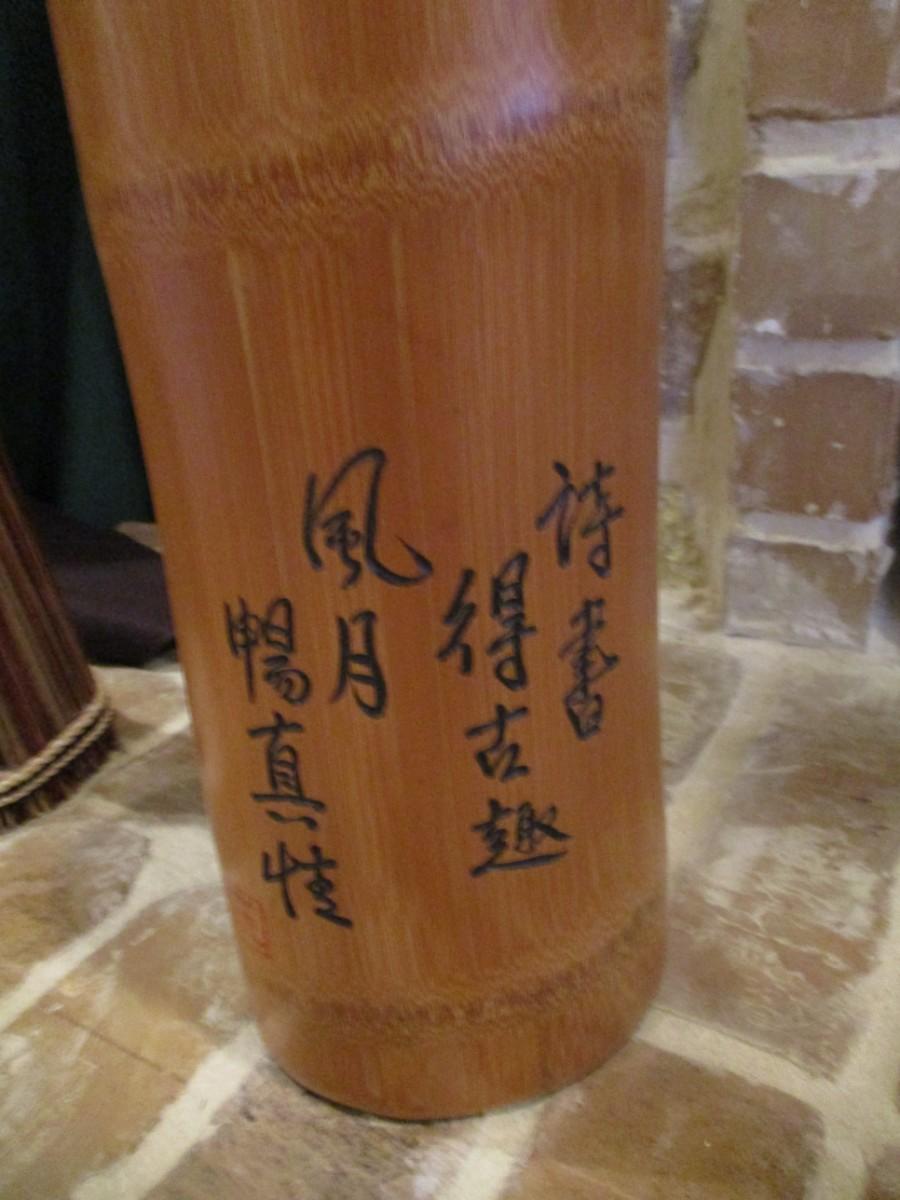 詩書
得古趣
風月
暢真情